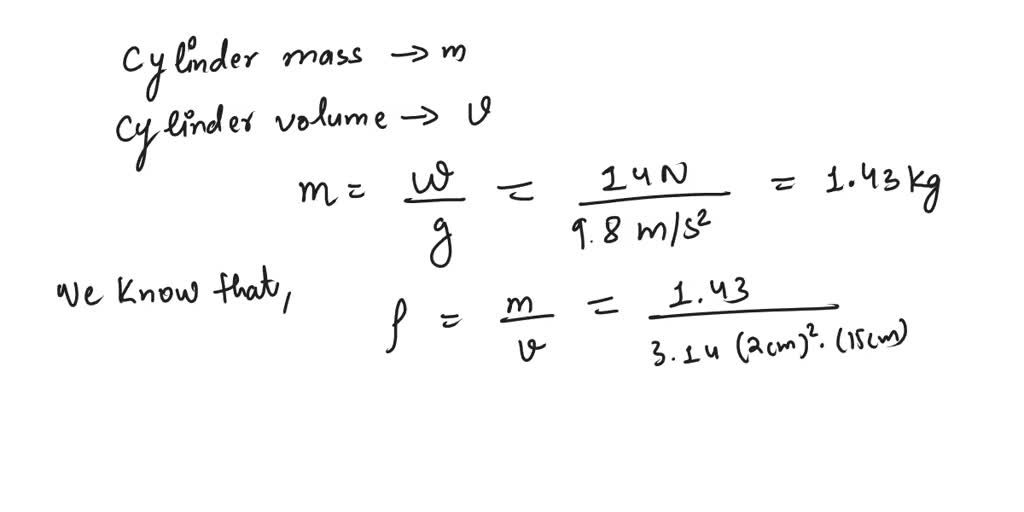 Cylinder mass → m
Cylinder volume → v
m = w/g = 14N / 9.8 m/s² = 1.43 kg
We know that,
ρ = m/v = 1.43 / 3.14 (2cm)². (15cm)